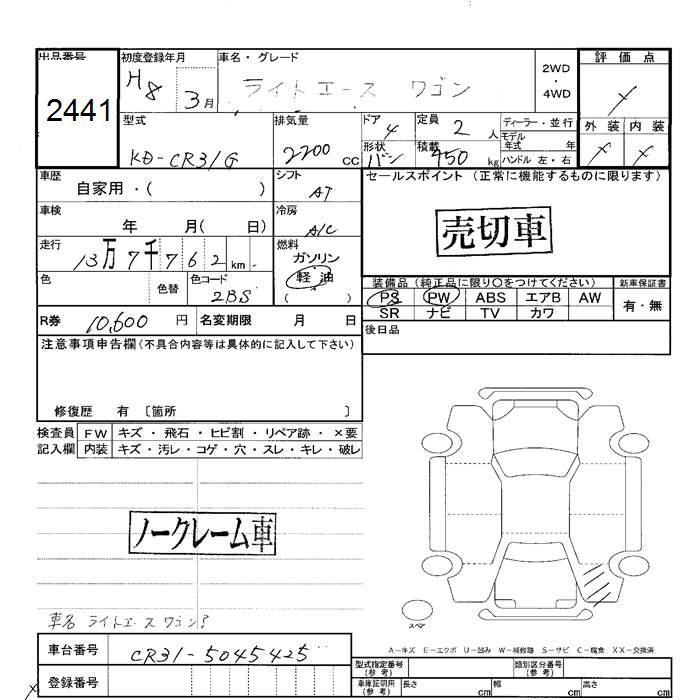 出品番号 初度登録年月 車名・グレード 評価点
2441
H8 3月
ライトエース ワゴン
2WD
・
4WD
外装 内装
型式 排気量 ドア 定員 ディーラー・並行
KD-CR31G 2200cc 4 2人 モデル年式 年
形状 積載
バン 950kg ハンドル 左・右
車歴 自家用・( ) シフト AT セールスポイント (正常に機能するものに限ります)
車検 年 月( 日) 冷房 A/C
売切車
走行 13万7千762km 燃料 ガソリン
軽油
( )
色 色替 色コード 2BS
装備品 (純正品に限り〇をつけてください) 新車保証書
PS PW ABS エアB AW 有・無
SR ナビ TV カワ
R券 10,600円 名変期限 月 日
後日品
注意事項申告欄(不具合内容等は具体的に記入して下さい)
修復歴 有 〔箇所 〕
検査員 FW キズ・飛石・ヒビ割・リペア跡・×要
記入欄 内装 キズ・汚レ・コゲ・穴・スレ・キレ・破レ
ノークレーム車
スペア
車名 ライトエース ワゴン?
A-キズ E-エクボ U-凹み W-補修跡 S-サビ C-腐食 XX-交換済
車台番号 CR31-5045425
登録番号
型式指定番号(参考) 類別区分番号(参考)
車庫証明用(参考) 長さ cm 幅 cm 高さ cm